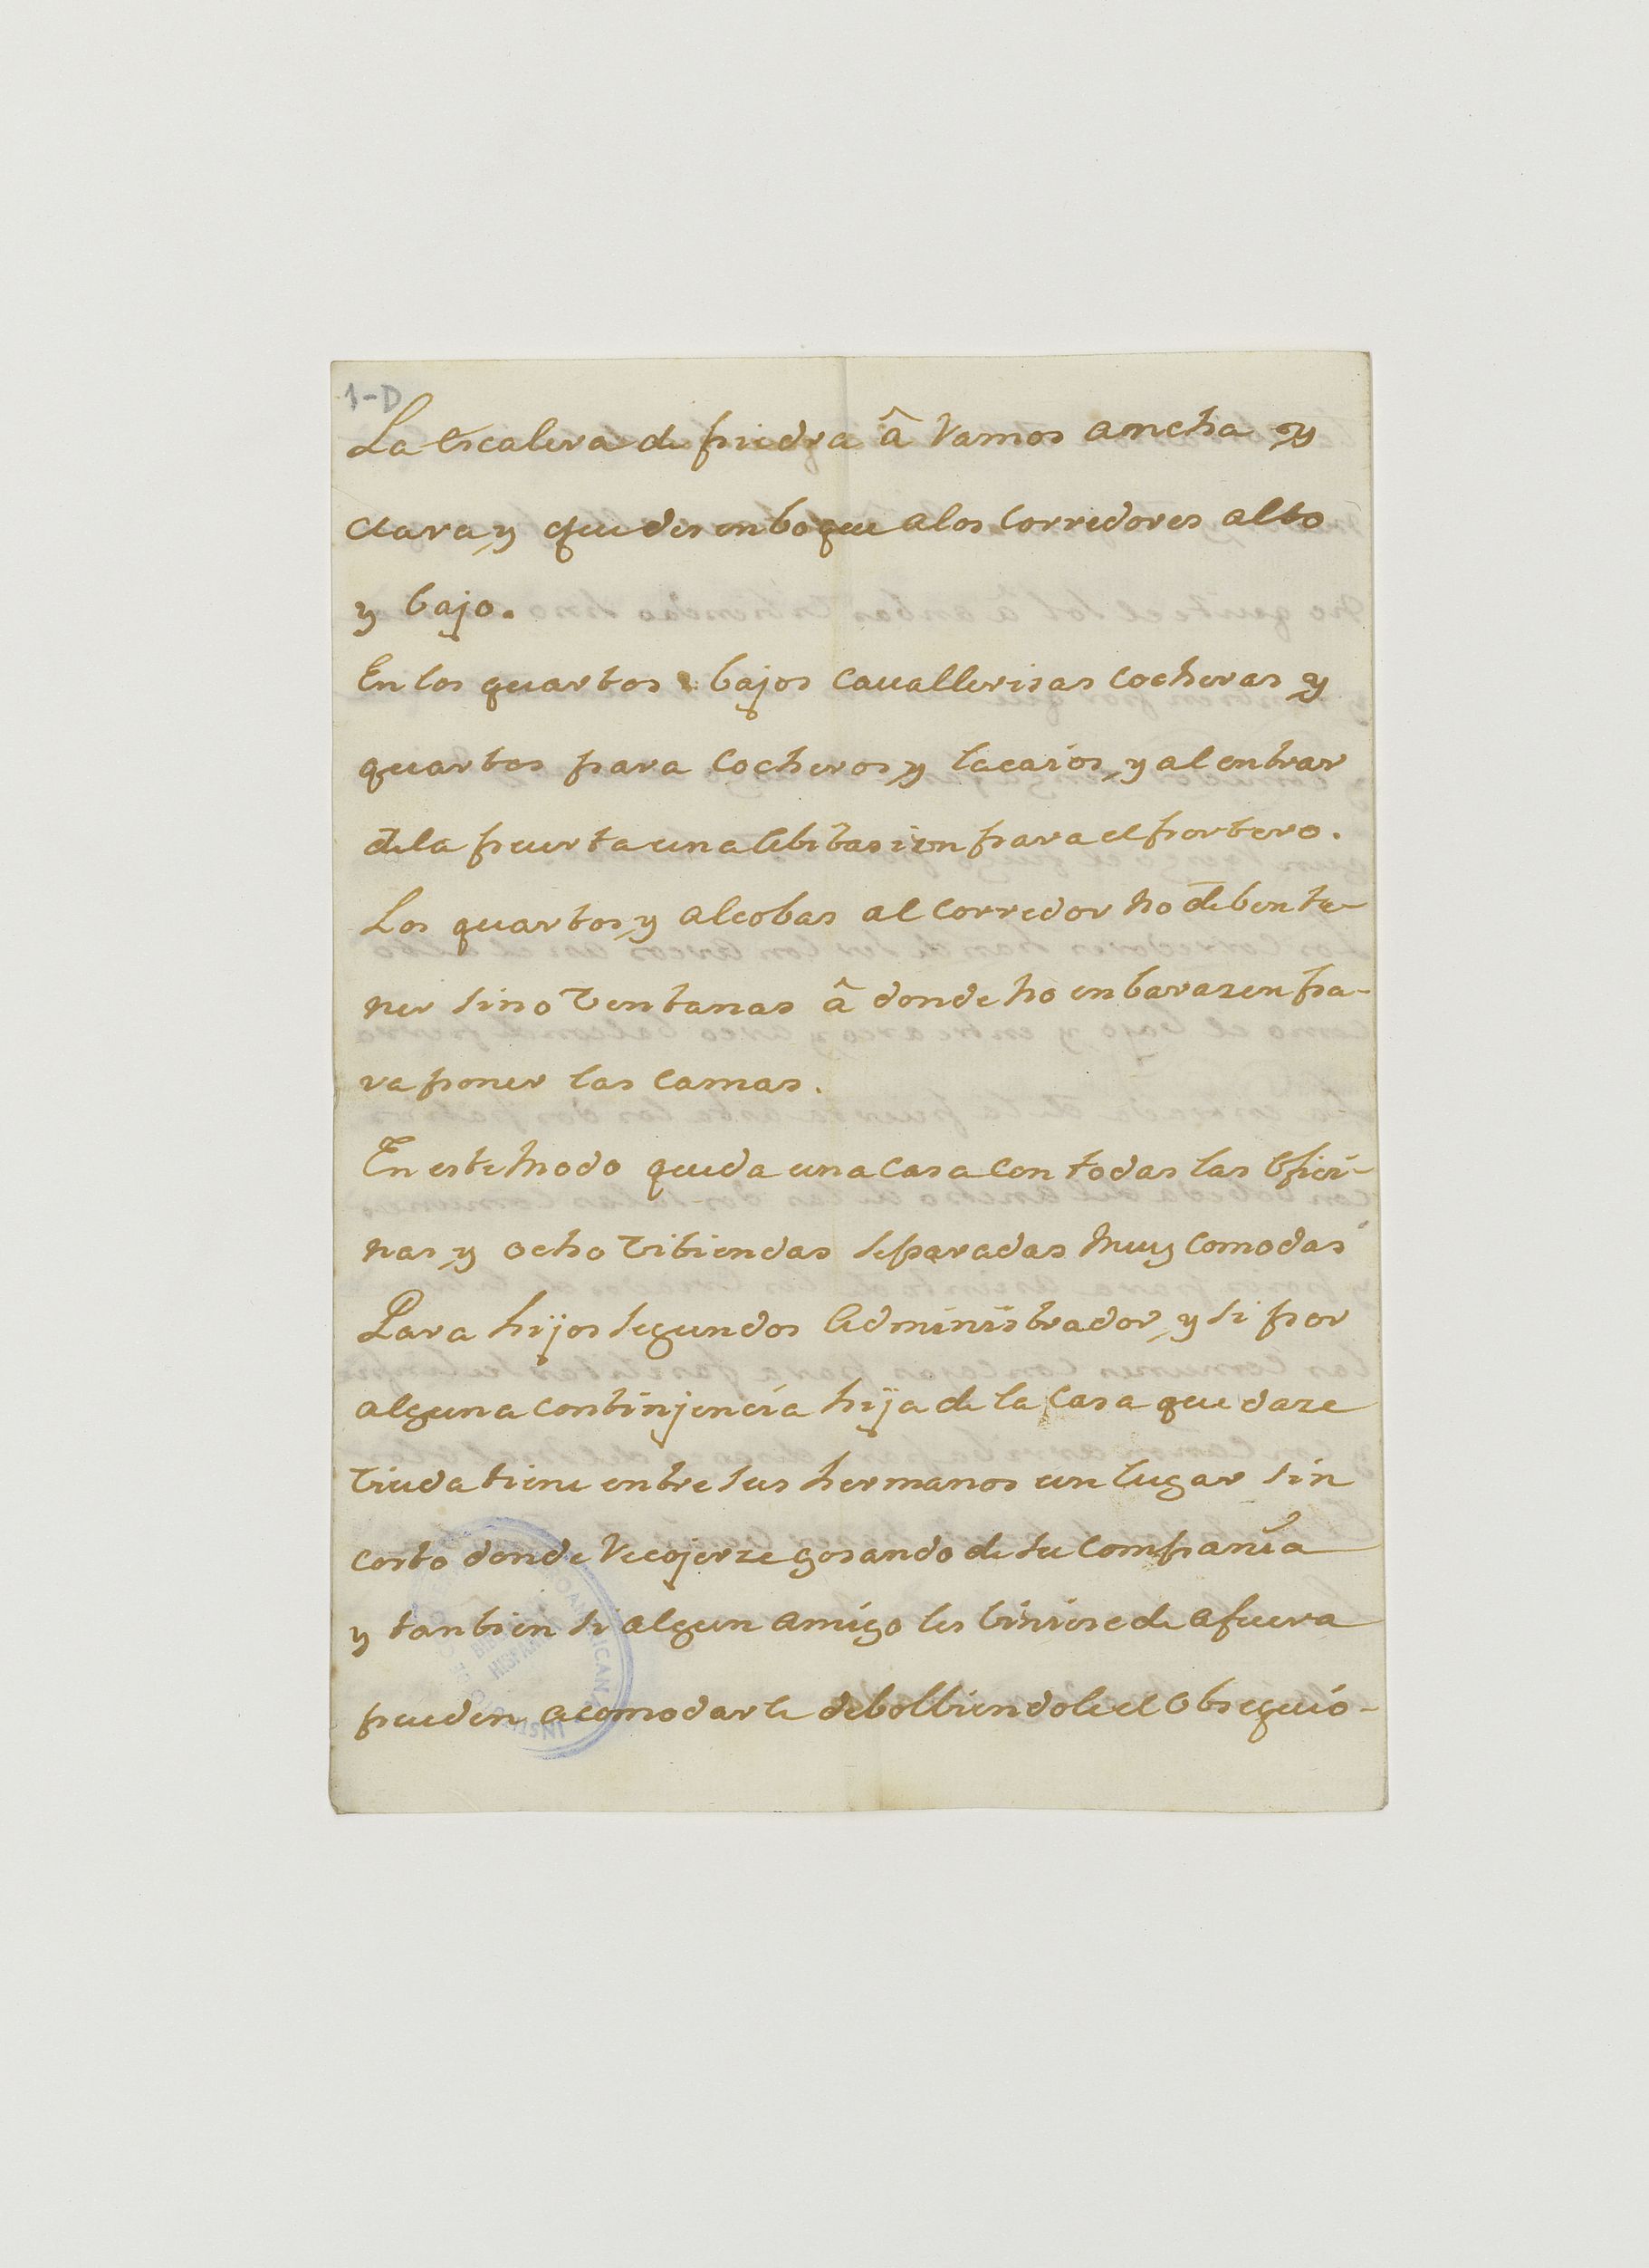 1-D
La escalera de piedra â Ramos ancha y
clara, y que desenboque alos corredores alto
y bajo.
En los quartos bajos cauallerisas cocheras y
quartos para cocheros, y lacaios, y al entrar
dela puerta una abitasion para el portero.
Los quartos, y alcobas al corredor no deben te-
ner sino ventanas â donde no enbarazen pa-
ra poner las camas.
En este modo queda una casa con todas las ofici-
nas, y ocho vibiendas separadas muy comodas
Para hijos segundos Administrador, y si por
alguna continjencia hija de la casa quedaze
viuda tiene entre sus hermanos un lugar sin
costo donde Recojerze gosando de su compañia
y tanbien si algun amigo les biniese de afuera
pueden acomodarle debolbiendole el obsequio-